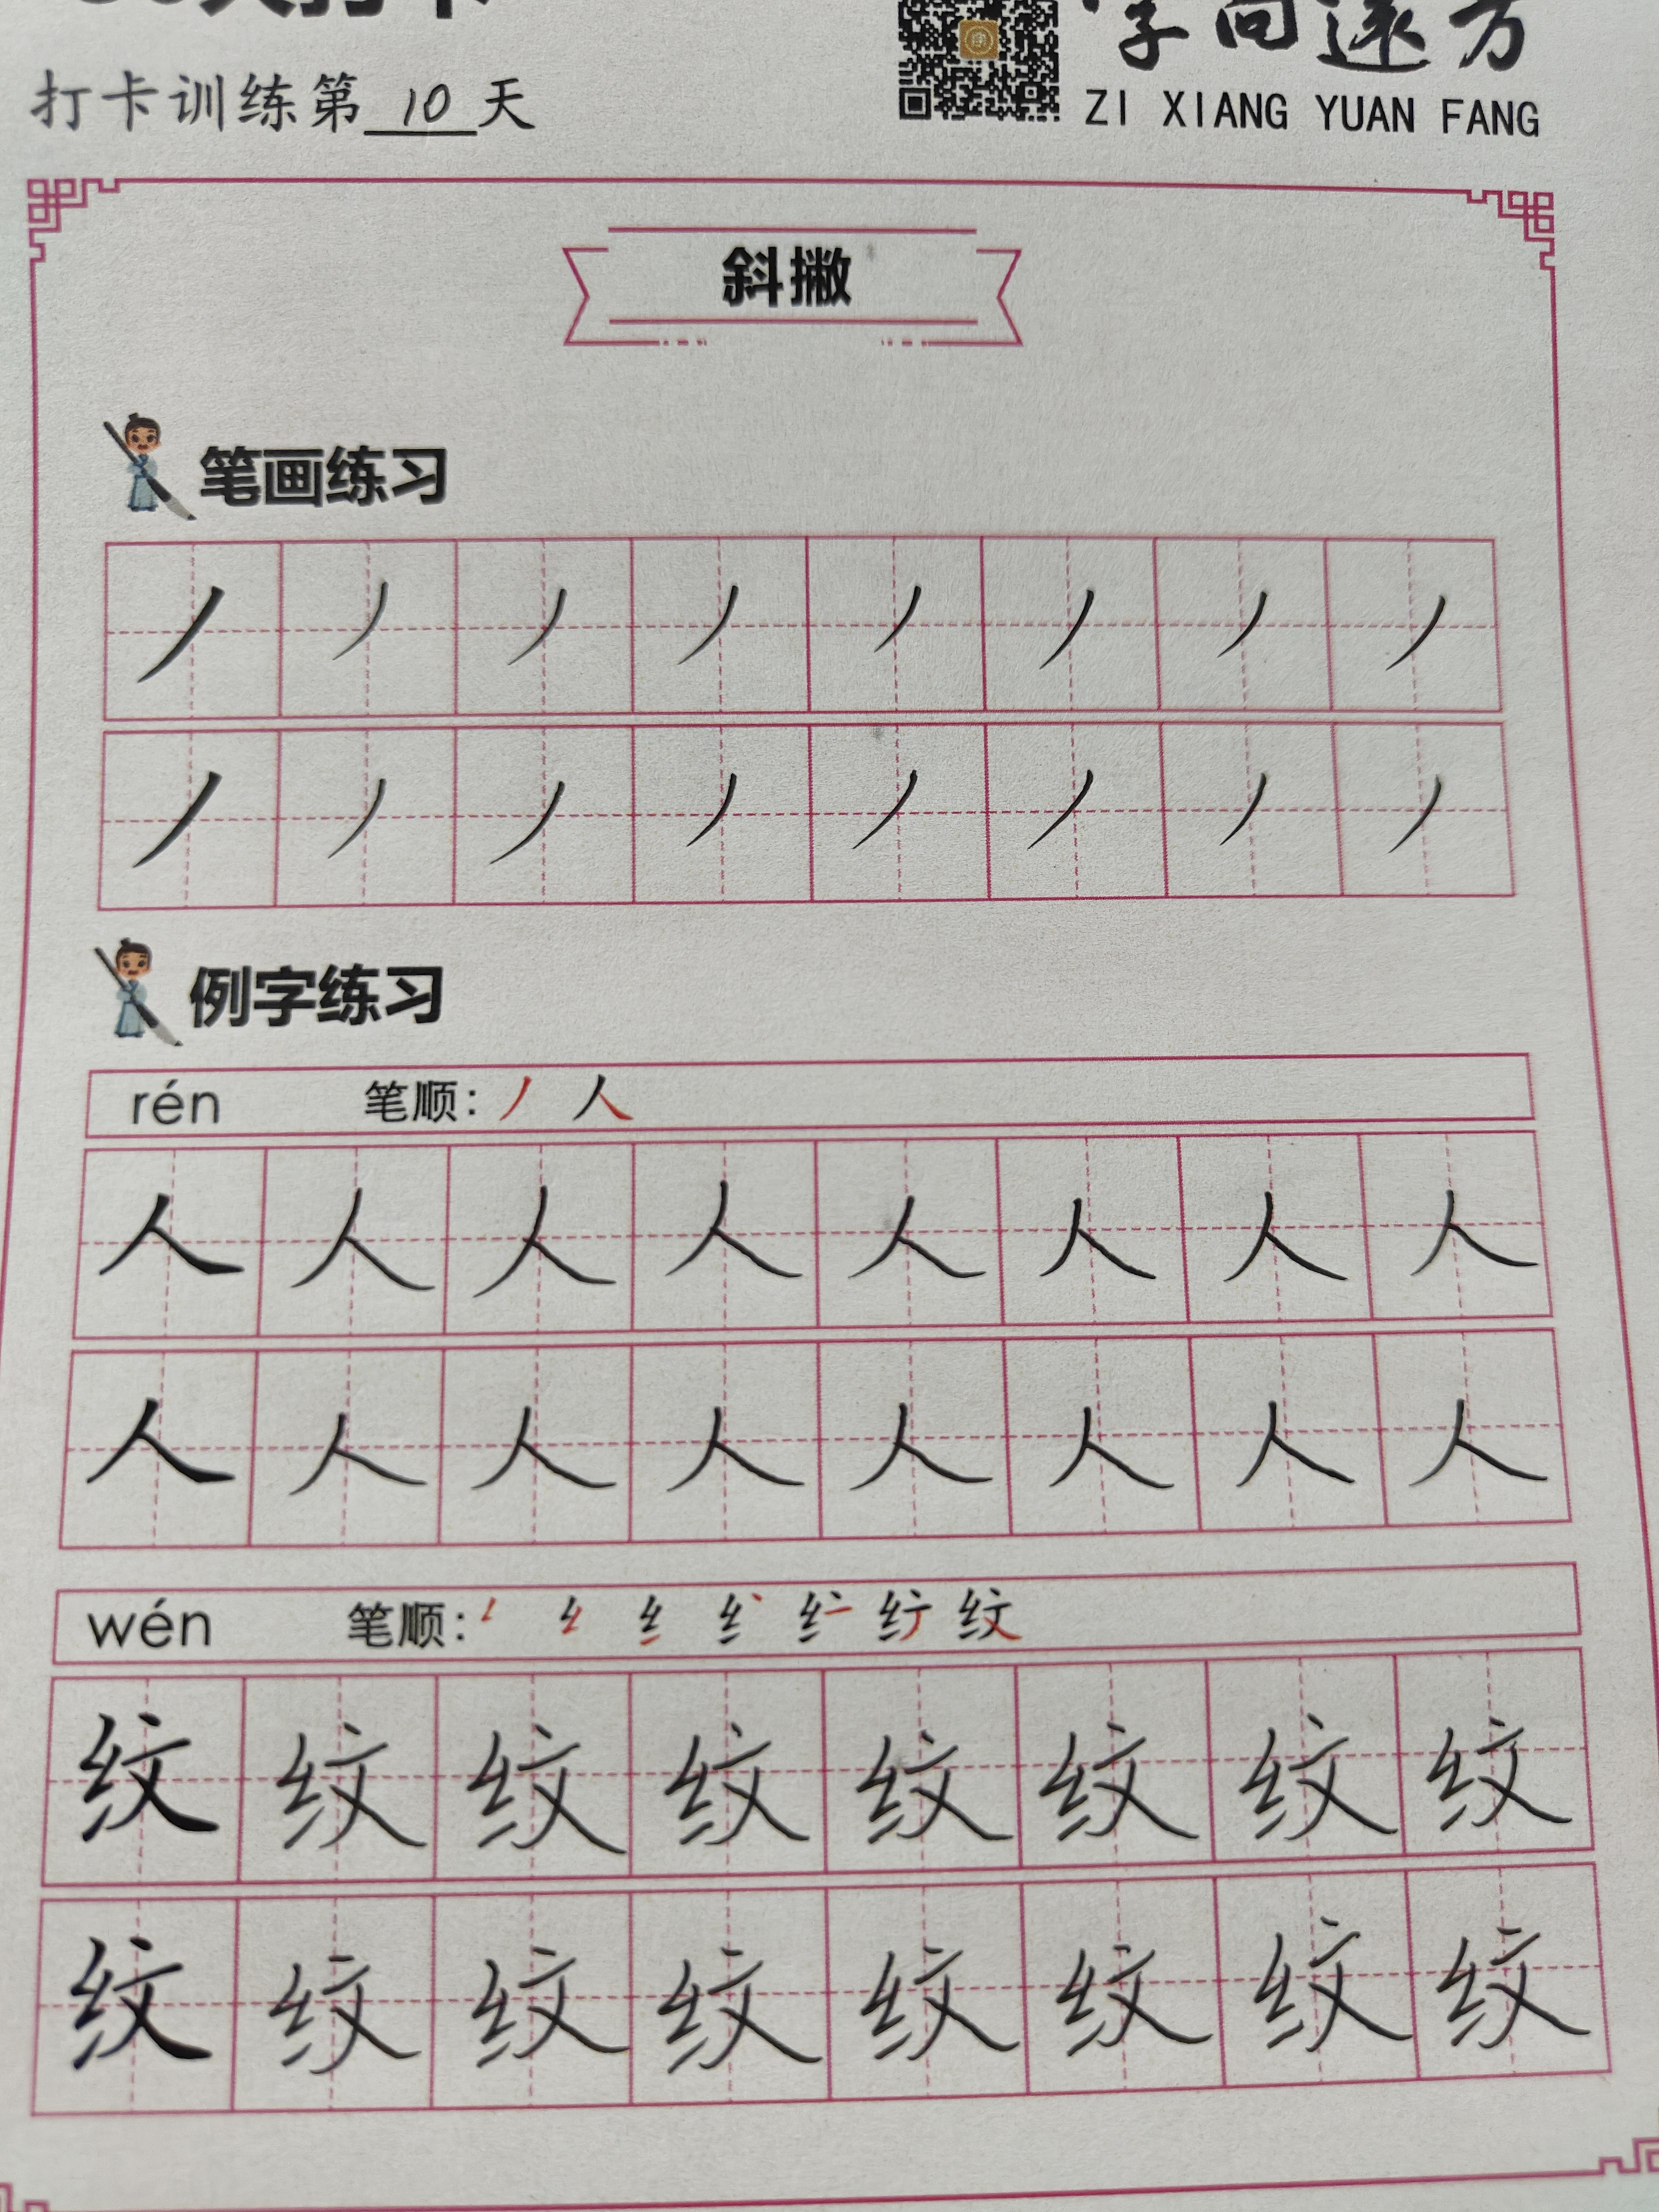 打卡训练第10天
字向远方
ZI XIANG YUAN FANG
斜撇
笔画练习
丿丿丿丿丿丿丿丿
丿丿丿丿丿丿丿丿
例字练习
rén 笔顺：丿 人
人人人人人人人人
人人人人人人人人
wén 笔顺：
纹纹纹纹纹纹纹纹
纹纹纹纹纹纹纹纹